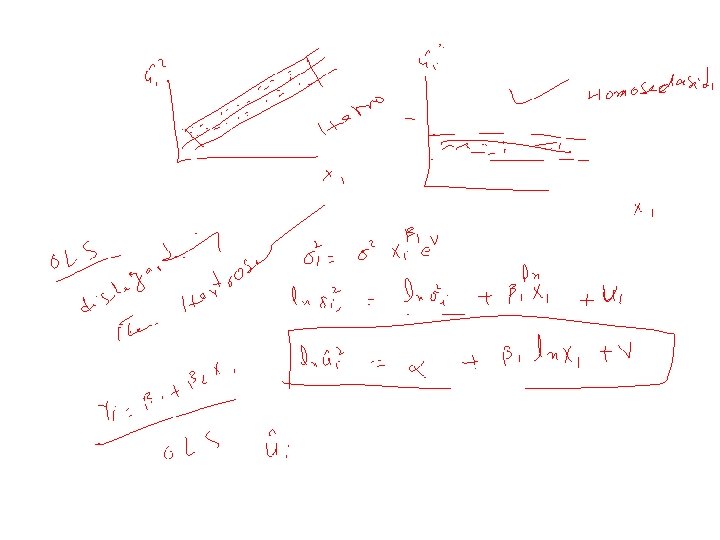 ûᵢ²
Hetero
X₁
ûᵢ²
Homoscedasici
X₁
OLS
disregard
the Hetrosc
σᵢ² = σ² Xᵢ^β₁ e^v
ln σᵢ² = ln σᵢ² + β₁ ln X₁ + Uᵢ
ln ûᵢ² = α + β₁ ln X₁ + V
Yᵢ = β₁ + β₂ Xᵢ
OLS ûᵢ